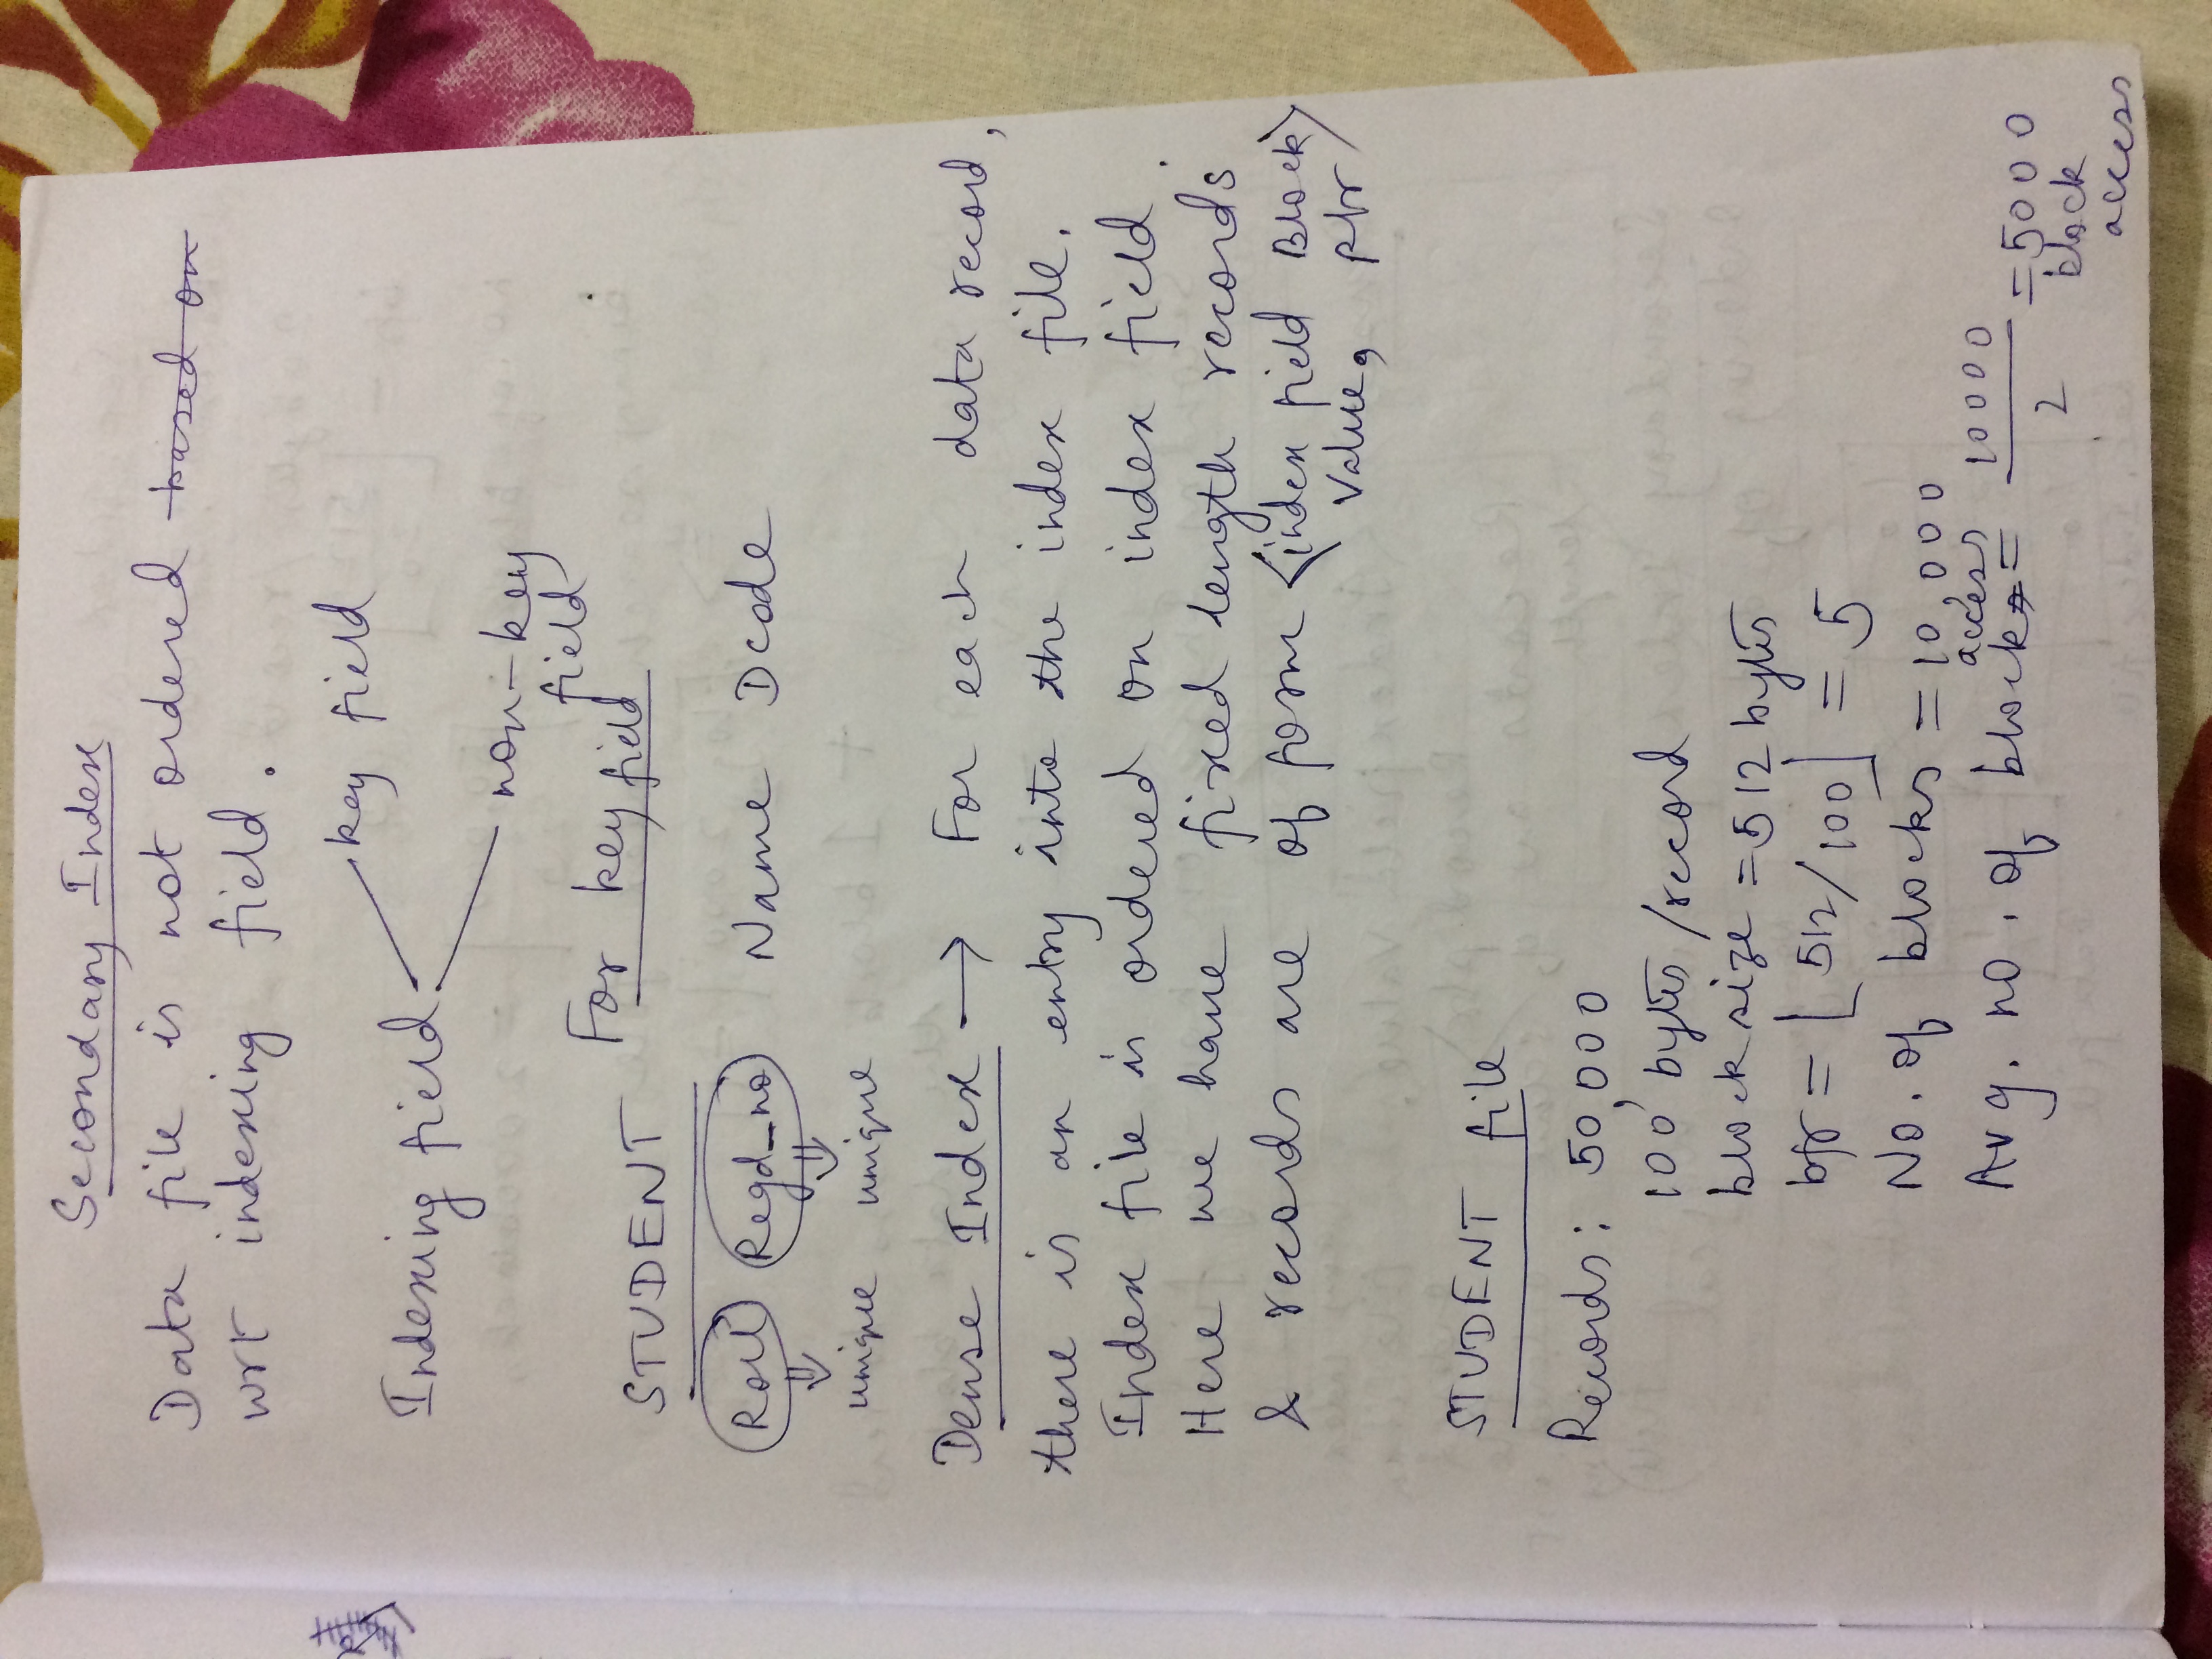 Secondary Index
Data file is not ordered based on
wrt indexing field.
key field
Indexing field
non-key
field
For key field
STUDENT
Roll Regd_no Name Dcode
unique unique
Dense Index → For each data record,
there is an entry into the index file.
Index file is ordered on index field.
Here we have fixed length records
& records are of form <index field Block>
Value, ptr
STUDENT file
Records: 50,000
100 bytes/record
block size = 512 bytes
bfr = ⌊512/100⌋ = 5
No. of blocks = 10,000
access
Avg. no. of block = 10000/2 = 5000
block
access